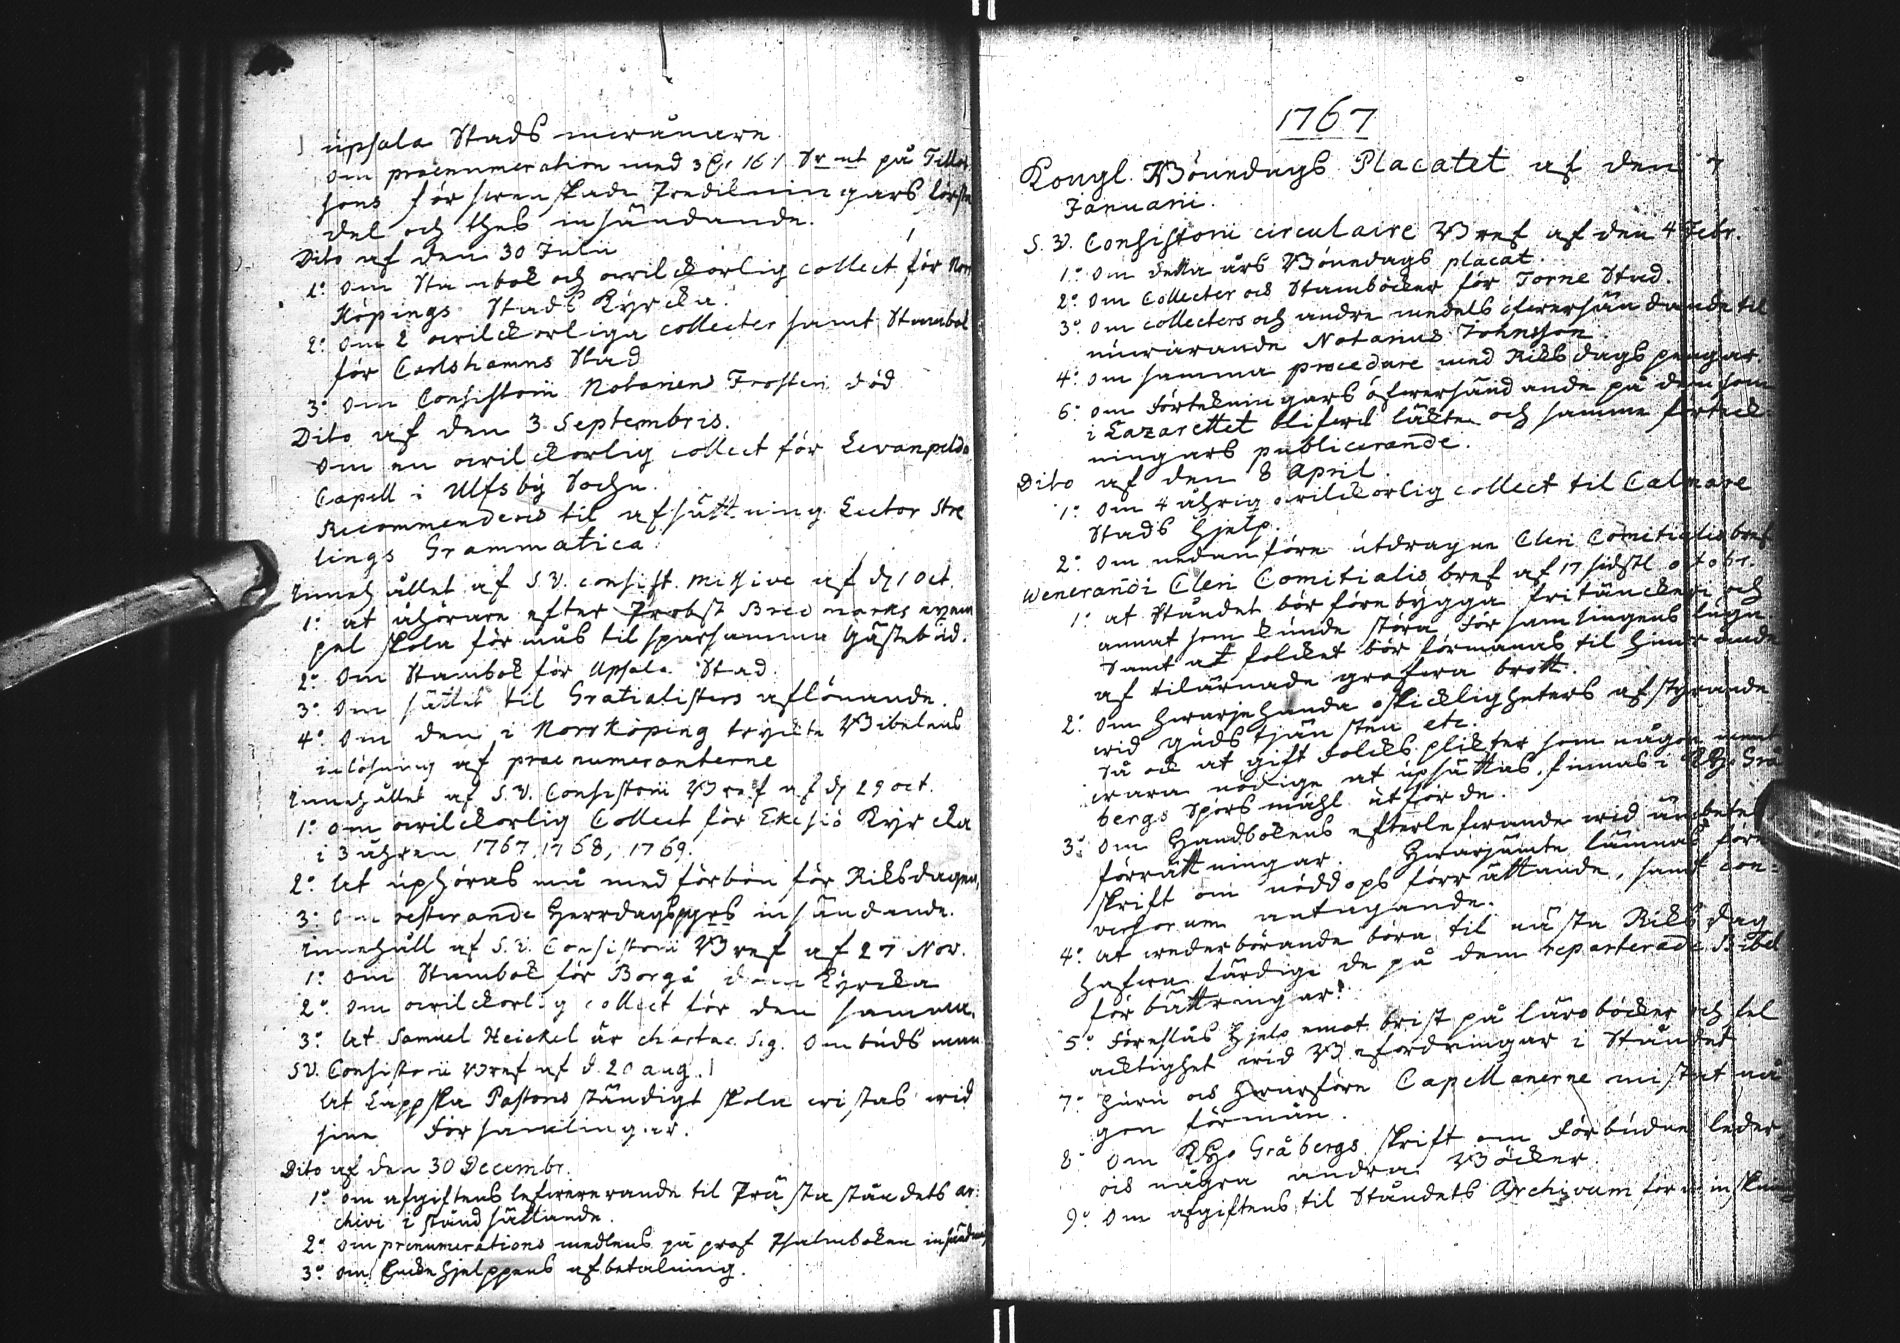 upsala Stads
om praenumeration med på
hons för swenskade Predikningars
del och thes insändande.
Dito af den 30 Julii
1:o Om Stambok och owilckorlig collect för Norr
Köpings Stads Kyrcka.
2:o Om 2 owilckorliga collecter samt Stambok
för Carlshamns Stad
3:o Om Consistorii Notariens Frosten död
Dito af den 3. Septembris.
Om en owilckorlig collect för
Capell i Ulfsby Sochn.
Recommenderes til afsättning Lector Stre
lings Grammatica.
Innehållet af S. V. Consist. Missive af d. 1 Oct.
1:o at åhörare efter Probst exem
pel skola förmås til sparsamma Gästebåd.
2:o Om Stambok för Upsala Stad.
3:o Om sättet til Gratialisters aflönande.
4:o Om den i Norrköping tryckta Bibelens
inlösning af praenumeranterne
Innehållet af S. V. Consistorii Bref af d. 29 oct.
1:o om owilckorlig Collect för Ekesiö Kyrcka
i 3 åhren 1767, 1768, 1769.
2:o At uphöras må med förbön för Riksdagen,
3:o Om resterande Herrdagspgrs insändande.
Innehåll af S. V. Consistorii Bref af 27 Nov.
1:o Om Stambok för Borgå dom Kyrcka
2:o Om owilckorlig collect för den samma.
3:o At Samuel Heickel är chartae Sig. Ombudsman
S. V. Consistorii Bref af d. 20 aug.
At Lappska Pastores ständigt skola wistas wid
sine Församlingar.
Dito af den 30 Decembr.
1:o om afgiftens lefwererande til Prästaståndets ar-
chivi i stånd sättande.
2:o Om prenumerations medlens på prof Psalmboken
3:o Om Enckehjelppens afbetalning.
1767
Kongl. Bönedags Placatet af den 7
Januarii.
S. V. Consistorii circulaire Bref af den 4 Febr.
1:o Om detta års Bönedags placat.
2:o Om Collecter och Stamböcker för Torne Stad.
3:o Om collecters och andre medels öfwersändande til
nuwarande Notarius Johnsson.
4:o Om samma procedure med Riksdagspengar
6:o Om Förtekningars öfwersändande på dem som
i Lazarettet blifwit läkte och samme förteck-
ningars publicerande.
Dito af den 8 April.
1:o Om 4 åhrig owilckorlig collect til Calmare
Stads Hjelp.
2:o Om nedanföre utdragne Cleri Comitialis bref
Wenerandi Cleri Comitialis bref af 17 sidstl. octobr.
1:o at Ståndet bör förebygga fritänckeri och
annat som kunde störa Församlingens lugn
samt at folcket bör förmanas til
af tilärnade grofwa brott.
2:o Om hwarjehanda oskickligheters afstyrande
wid gudstjänsten etc.
Så ock at gift Folcks plikter som någon ment
wara nödige at upsättas, finnas i KHo Grå
bergs Spörsmåhl utförde.
3:o Om Handbokens efterlefwande wid ämbetets
förrättningar. Hwarjämte lämnas före
skrift om nöddops förrättande, samt con-
versorum antagande.
4:o at wederbörande böra til nästa Riksdag
hafwa färdiga de på dem reparterade Bibel
förbättringar.
5:o Föreslås hjelp emot brist på läroböcker och fel
acktighet wid Befordringar i Ståndet
7:o huru och hwarföre Capellanerne mistat nå
gon förmån.
8:o Om KHo Gråbergs skrift om Förbudne leder
och några andra Böcker.
9:o Om afgiftens til Ståndets Archivum